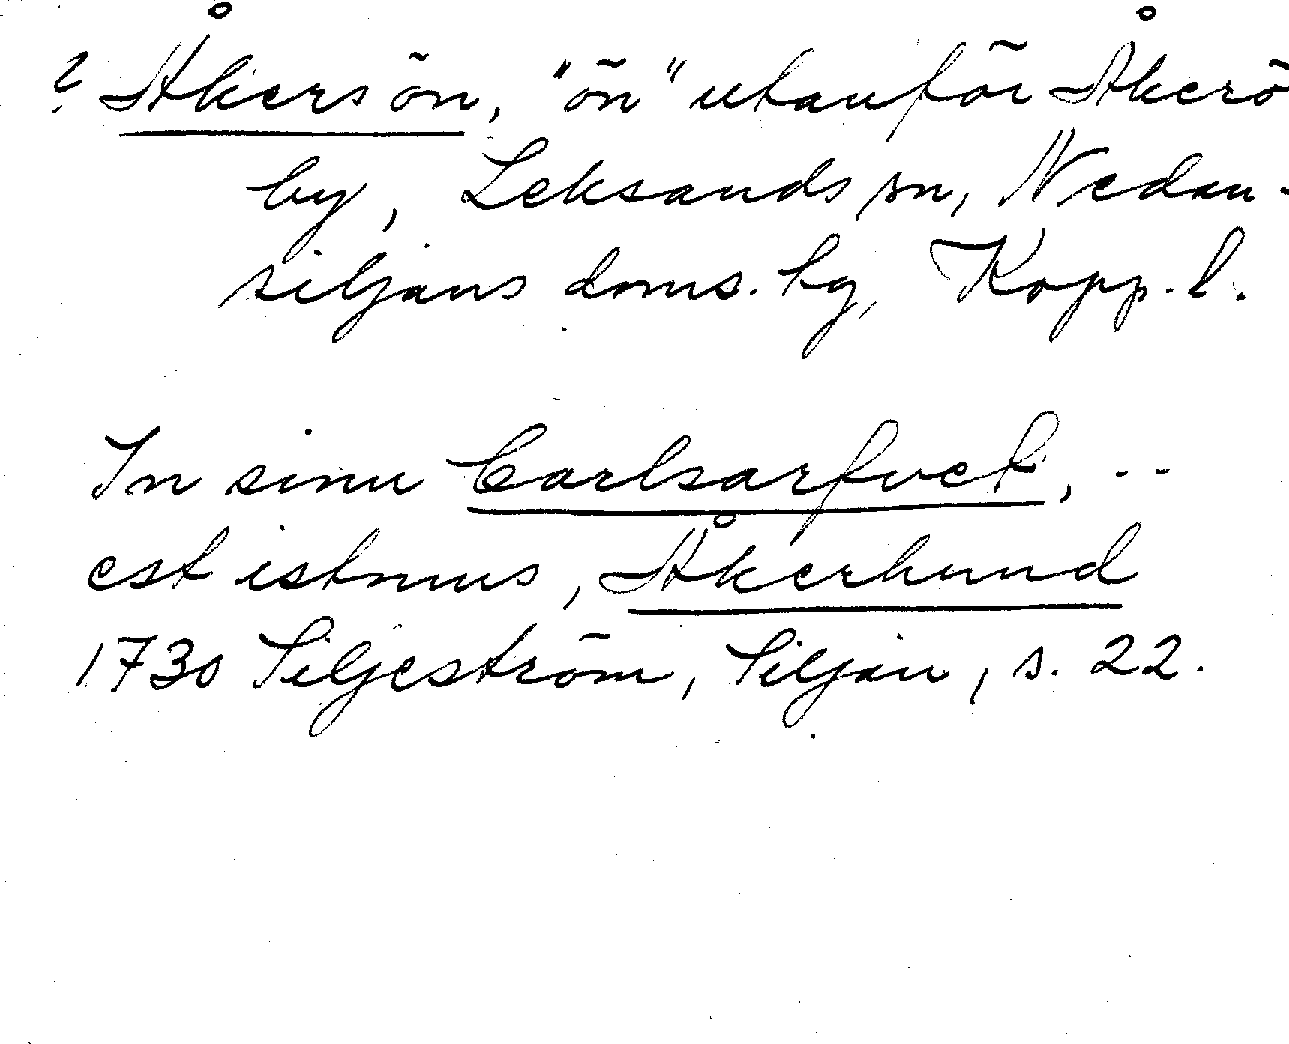 ? Åkersön, "ön" utanför Åkerö
by, Leksands sn, Nedan-
siljans doms. hg, Kopp. l.
In sinu Carlsarfvet, --
est istmus, Åkerhund
1730 Siljeström, Siljan, s. 22.